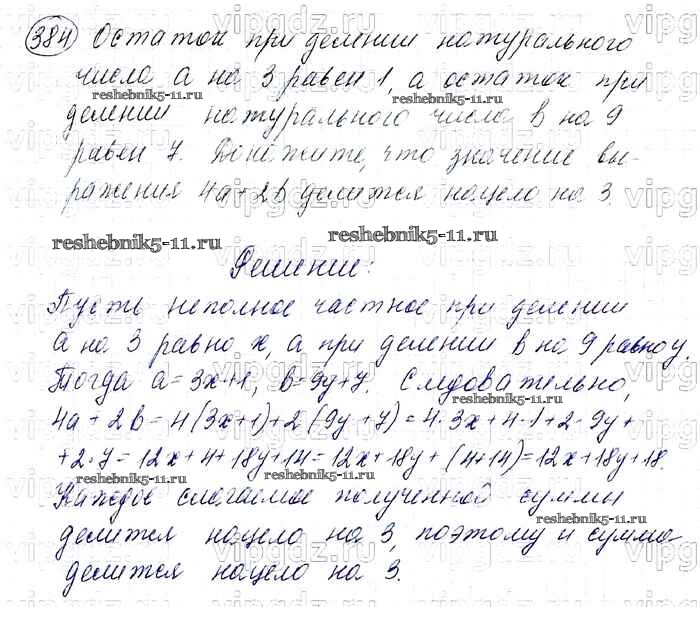 384 Остаток при делении натурального
числа a на 3 равен 1, а остаток при
делении натурального числа b на 9
равен 7. Докажите, что значение вы-
ражения 4a+2b делится нацело на 3.
Решение:
Пусть неполное частное при делении
a на 3 равно x, а при делении b на 9 равно y.
Тогда a=3x+1, b=9y+7. Следовательно,
4a+2b=4(3x+1)+2(9y+7)=4·3x+4·1+2·9y+
+2·7=12x+4+18y+14=12x+18y+(4+14)=12x+18y+18.
Каждое слагаемое полученной суммы
делится нацело на 3, поэтому и сумма
делится нацело на 3.
reshebnik5-11.ru
reshebnik5-11.ru
reshebnik5-11.ru
reshebnik5-11.ru
reshebnik5-11.ru
reshebnik5-11.ru
reshebnik5-11.ru
vipgdz.ru